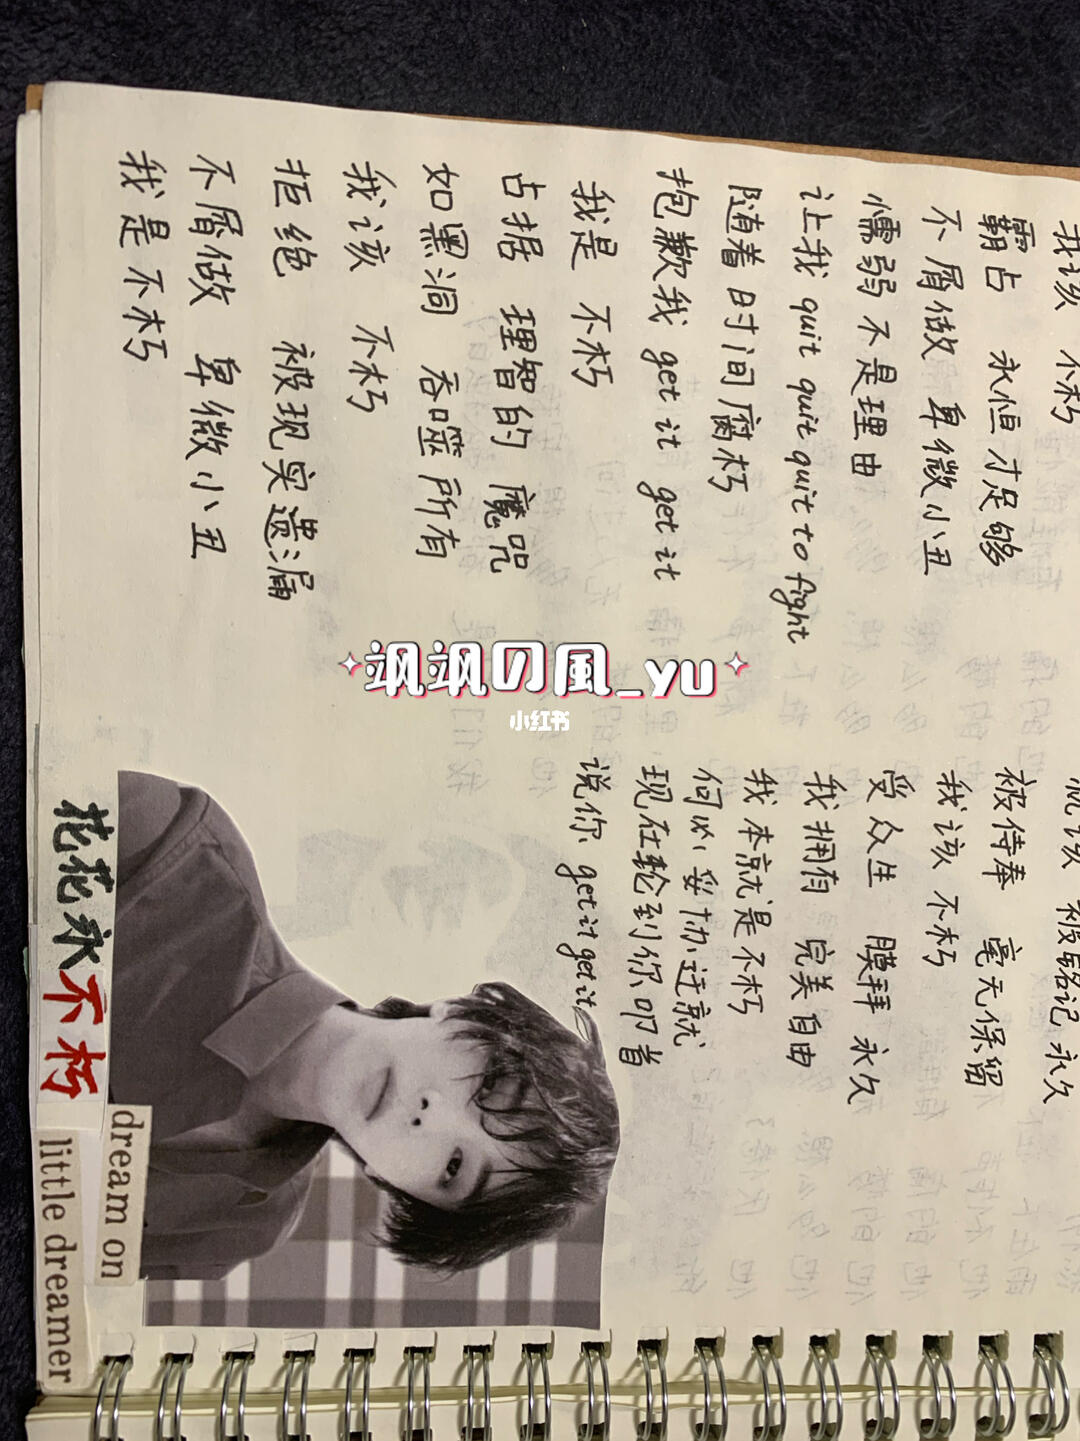 我该 不朽
霸占 永恒才足够
不屑做 卑微小丑
懦弱不是理由
让我 quit quit quit quit to fight
随着时间腐朽
抱歉我 get it get it
我是 不朽
占据 理智的 魔咒
如黑洞 吞噬所有
我该 不朽
拒绝 被现实遗漏
不屑做 卑微小丑
我是不朽
就该 被铭记 永久
被侍奉 毫无保留
我该 不朽
受众生 膜拜 永久
我拥有 完美自由
我本就是不朽
何必妥协迁就
现在轮到你叩首
说你 get it get it
飒飒の風_yu
小红书
花花永不朽
dream on
little dreamer